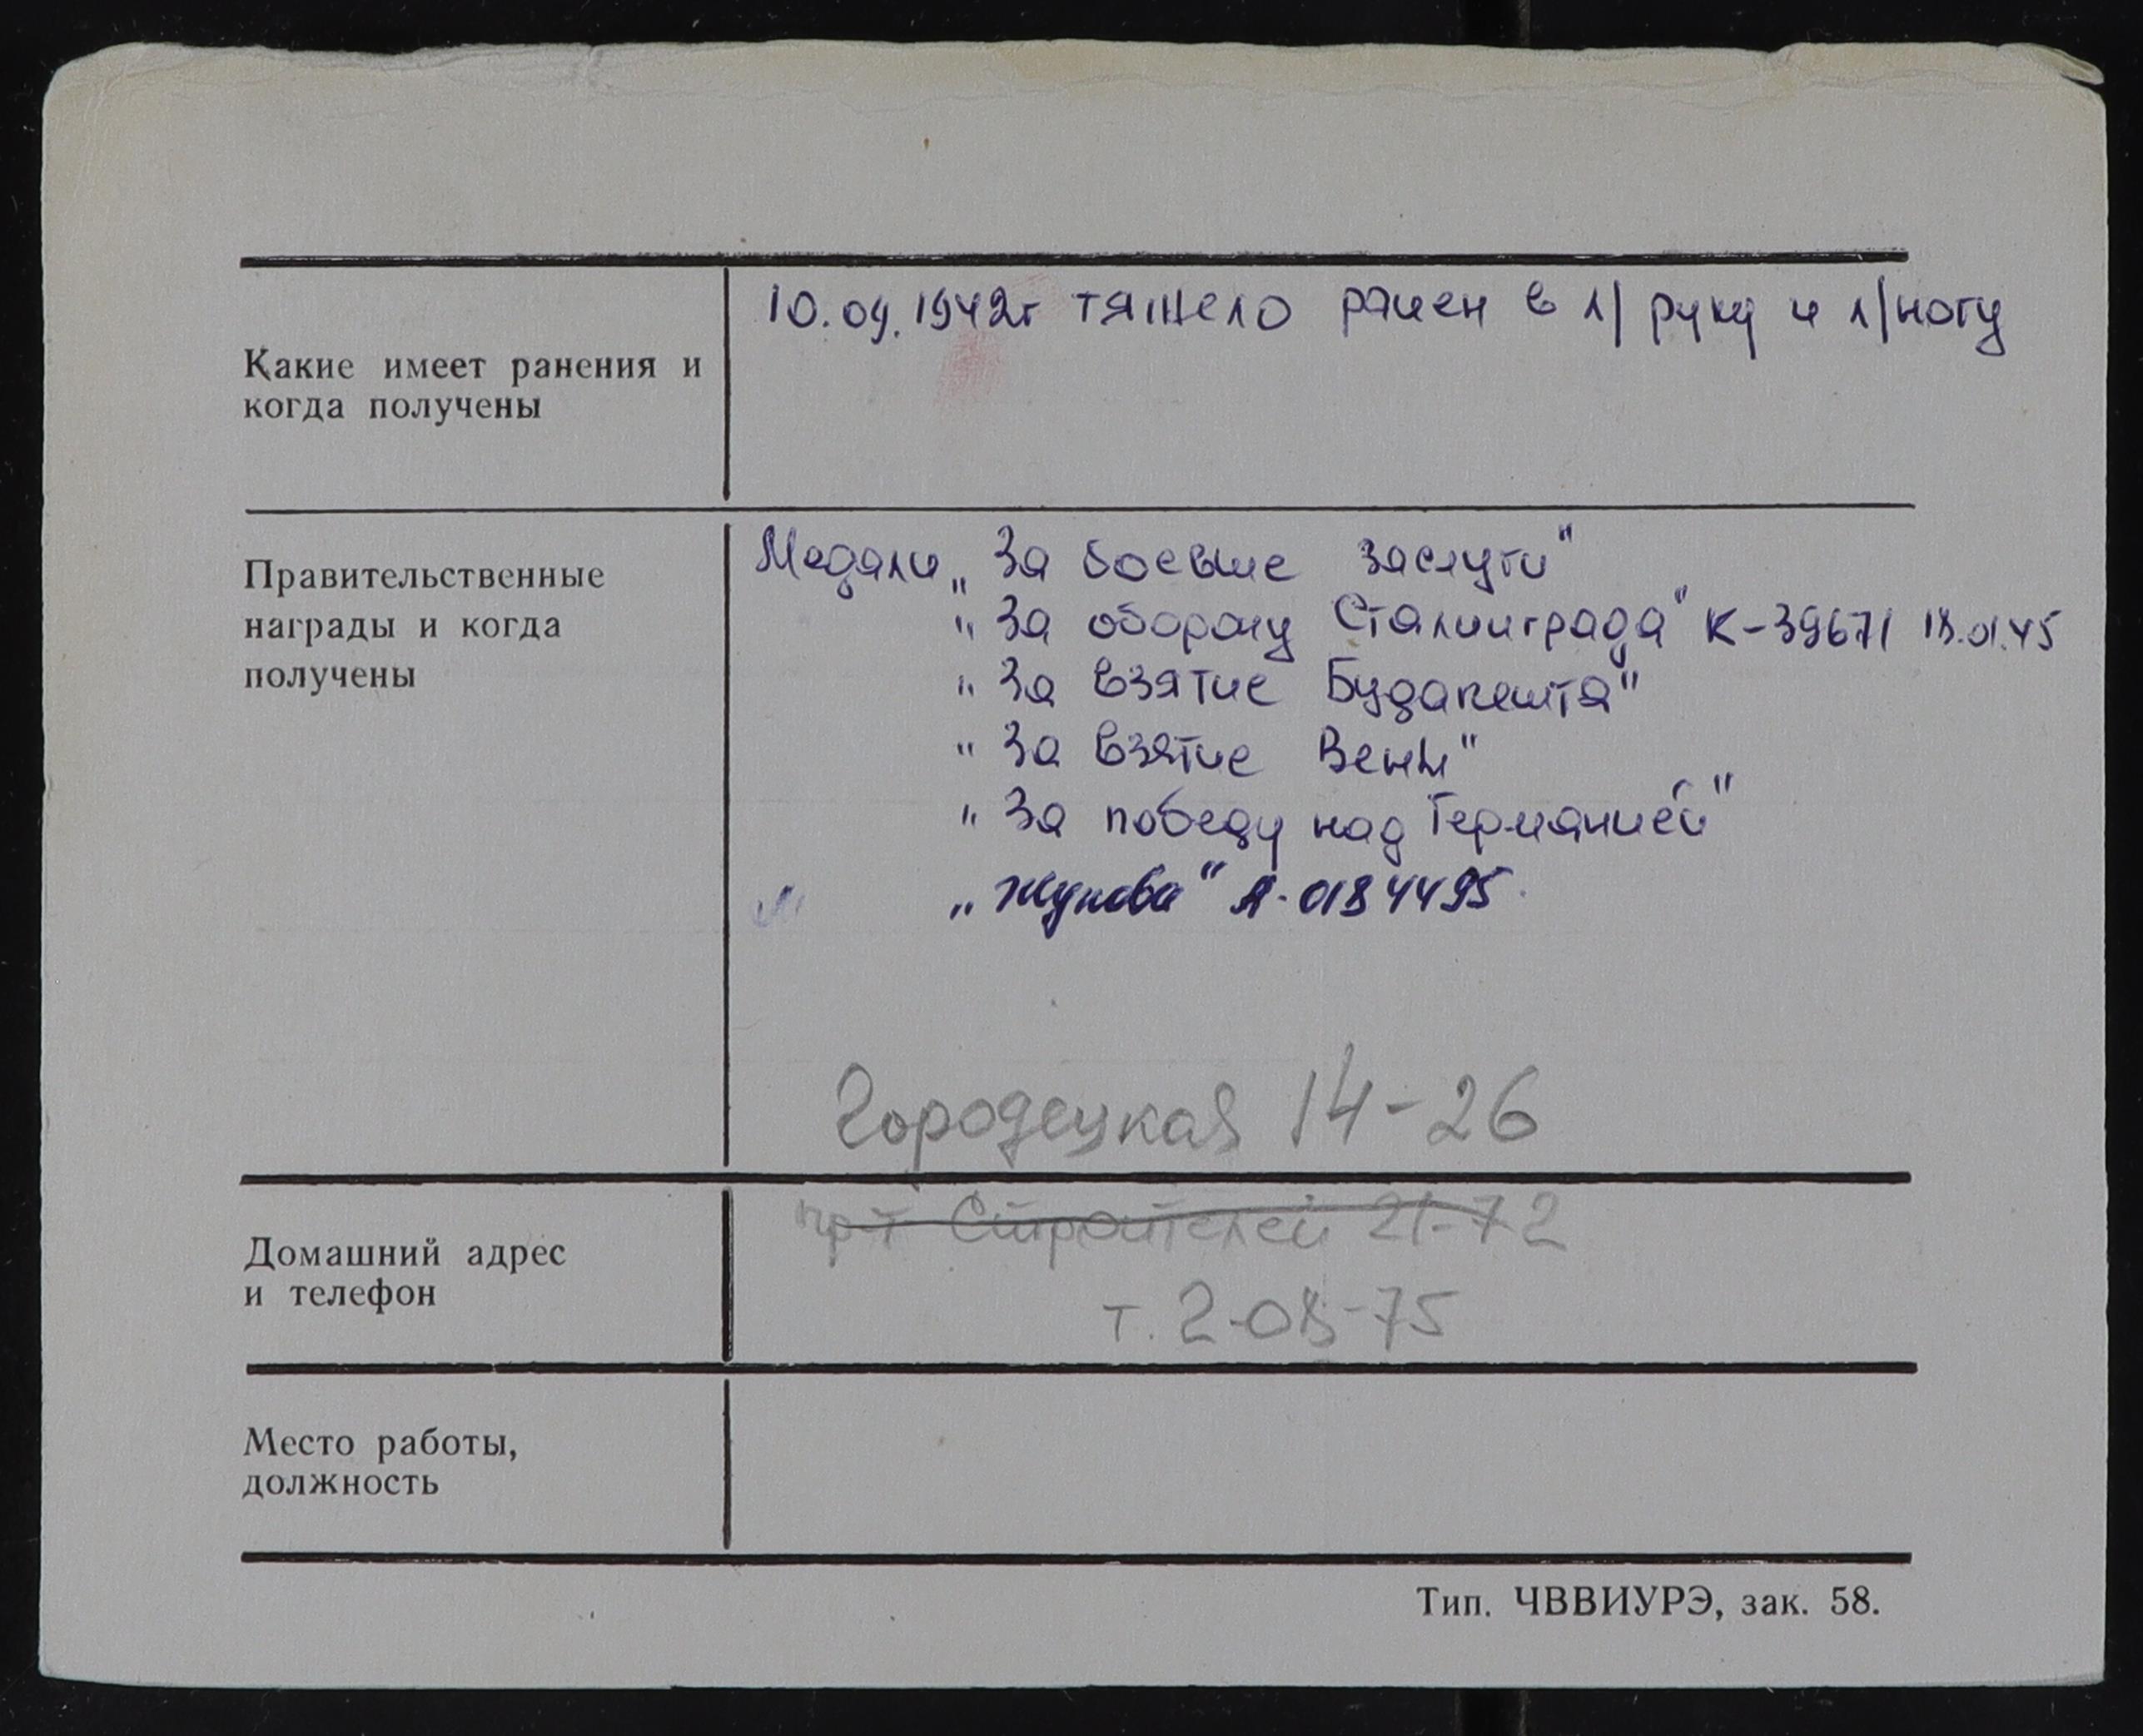 Какие имеет ранения и
когда получены
10.09.1942г тяжело ранен в л/ руку и л/ногу
Правительственные
награды и когда
получены
Медали „За боевые заслуги"
"За оборону Сталинграда" К-39671 18.01.45
"За взятие Будапешта"
"За взятие Вены"
"За победу над Германией"
„Жукова" А-0184495
Городецкая 14-26
Домашний адрес
и телефон
пр-т Строителей 21-72
т. 2-08-75
Место работы,
должность
Тип. ЧВВИУРЭ, зак. 58.